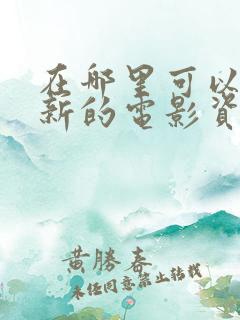 在哪里可以
新的电影资
黄勝春
未任同意禁止转载